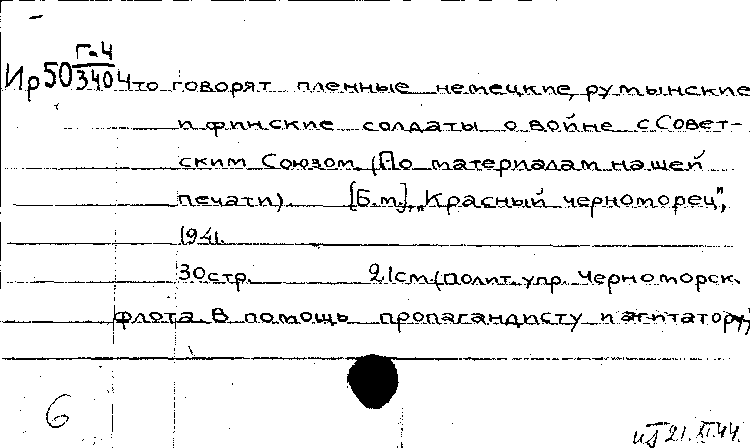 Г-4
Ир50 3404 Что говорят пленные немецкие, румынские
и финские солдаты о войне с Совет-
ским Союзом. (По материалам нашей
печати). [Б.м.], "Красный черноморец",
1941.
30стр. 21см. (Полит. упр. Черноморск.
флота. В помощь пропагандисту и агитатору)
6
21.XI.44.